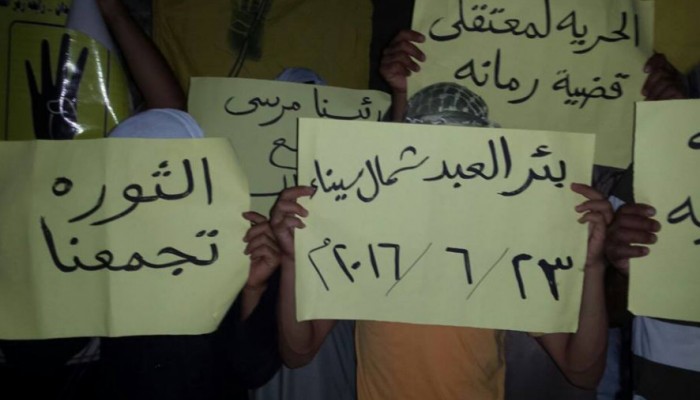 الحريه لمعتقلى
قضية رمانه
رئيسنا مرسى
بئر العبد شمال سيناء
٢٣ / ٦ / ٢٠١٦م
الثوره
تجمعنا